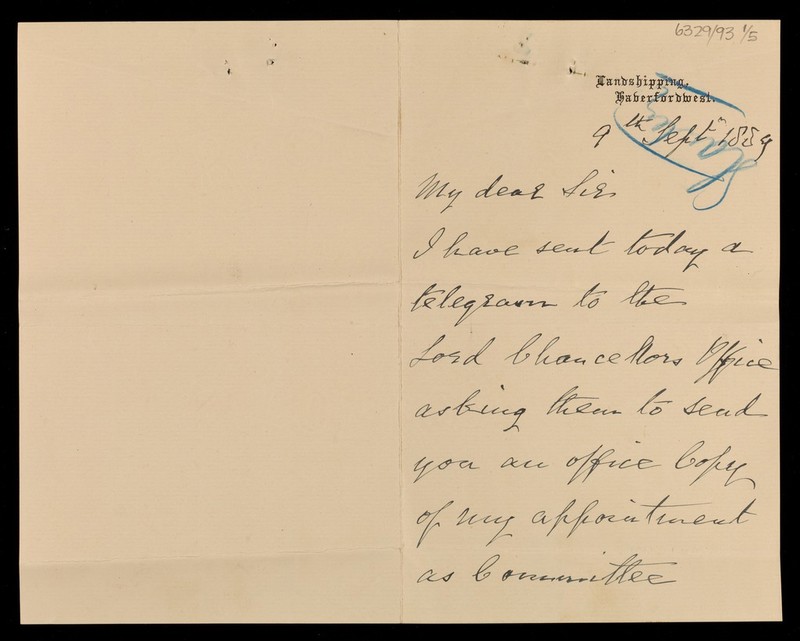 6329/93 1/5
Landshipping,
Haverfordwest.
9th Septr 1889
My dear Sir
I have sent today a
telegram to the
Lord Chancellors Office
asking them to send
you an office Copy
of my appointment
as Committee